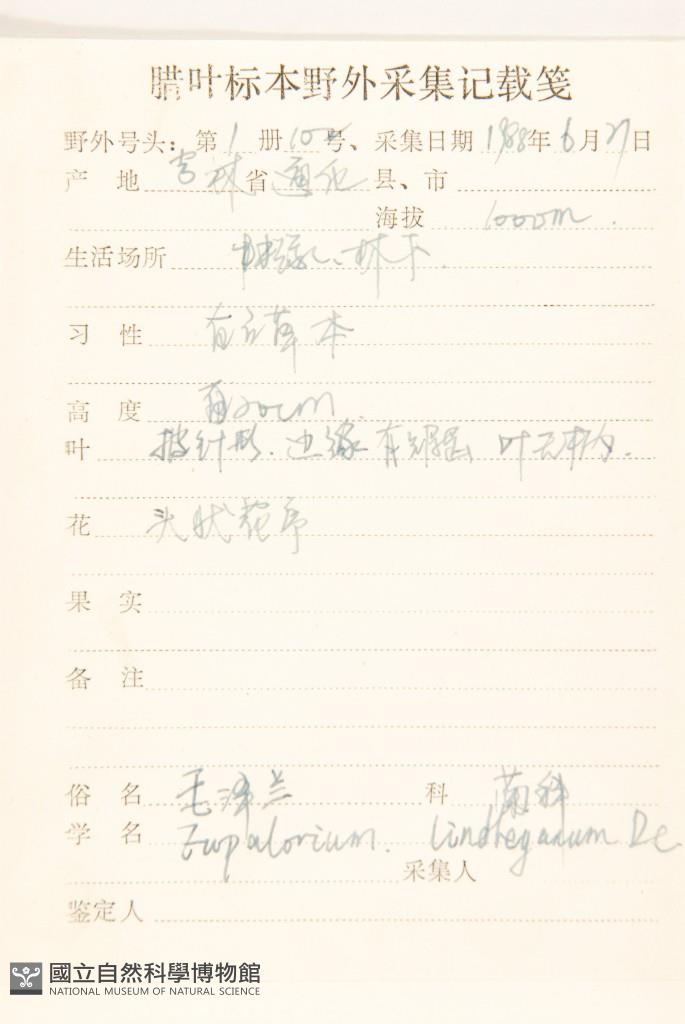 腊叶标本野外采集记载笺
野外号头: 第 1 册 号、采集日期 1988年 6月 27日
产 地 吉林 省 通化 县、市
海拔 1000m.
生活场所 林下.
习 性 直立草本
高 度 cm
叶 披针形. 边缘有锯齿 叶
花 头状花序
果 实
备 注
俗 名 毛泽兰 科 菊科
学 名 Eupalorium. lindleyanum Dc
采集人
鉴定人
國立自然科學博物館
NATIONAL MUSEUM OF NATURAL SCIENCE